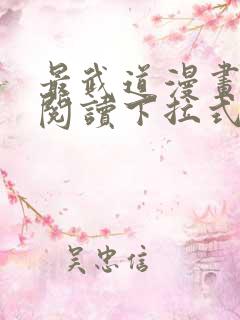 最武道漫畫
閱讀下拉式
吴忠信